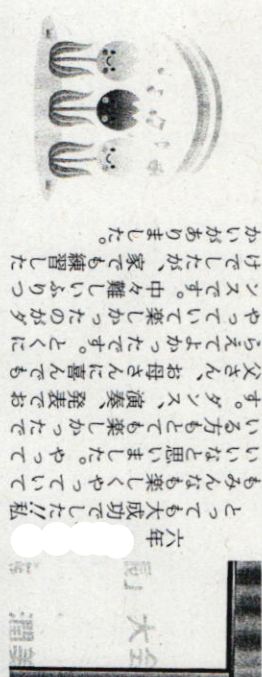 六年
とっても大成功でした!!私
もみんなも楽しくやっていて
いいなと思いました。やって
いる方もとても楽しかったで
す。ダンス、演奏、発表でお
父さん、お母さんに喜んでも
らえてよかったです。とくに
やっていて楽しかったのがダ
ンスです。中々難しいふりつ
けでしたが、家でも練習した
かいがありました。